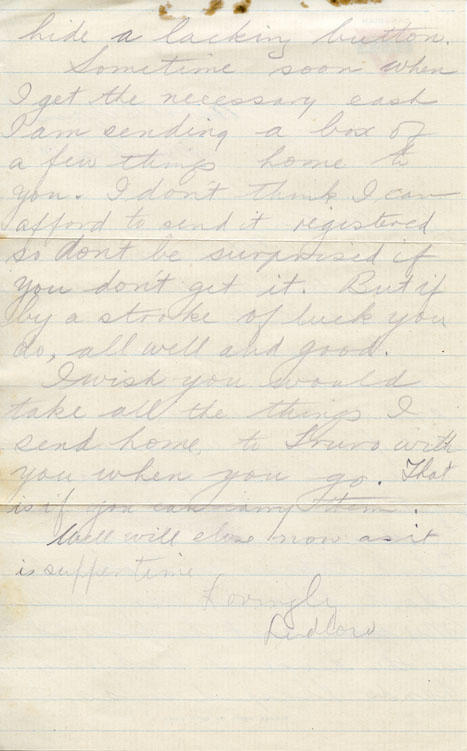 hide a lacking button.
Sometime soon when
I get the necessary cash
I am sending a box of
a few things home to
you. I don't think I can
afford to send it registered
so dont be surprised if
you don't get it. But if
by a stroke of luck you
do, all well and good.
I wish you would
take all the things I
send home, to Truro with
you when you go. That
is if you can carry them.
Well will close now as it
is supper time
Lovingly